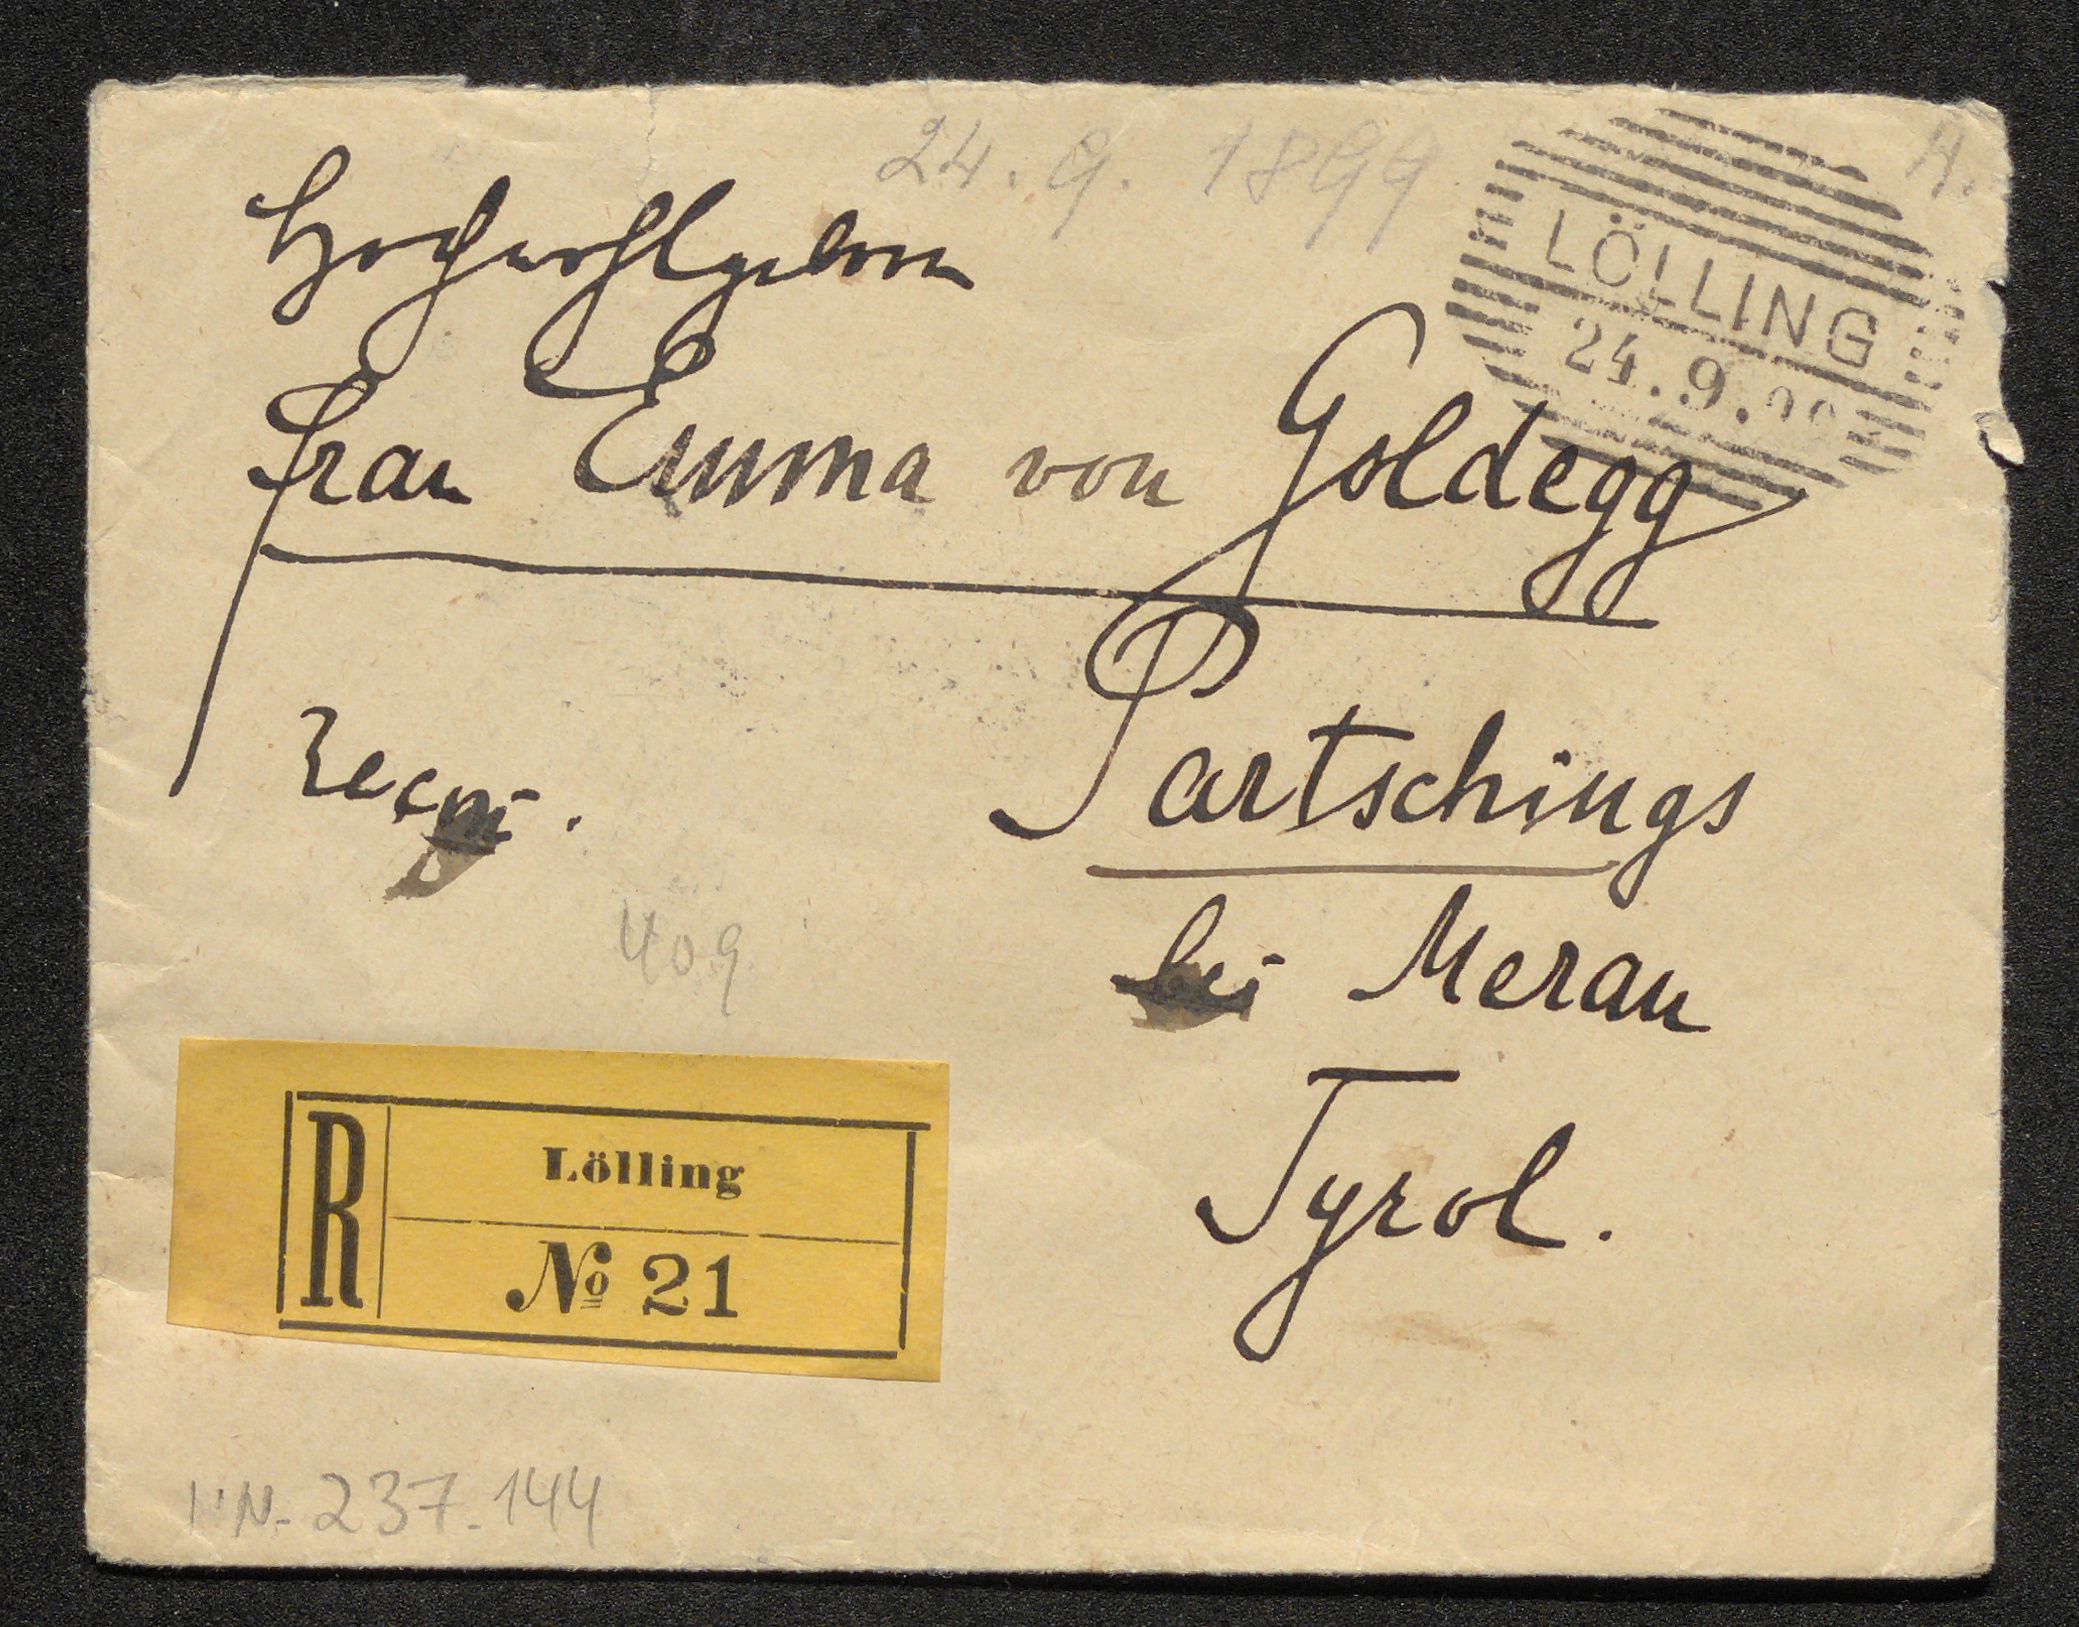 24. 9. 1899
A.
LÖLLING
24.9.99
Hochwohlgeborn
Frau Emma von Goldegg
Partschings
recm.
bei Meran
409
Tyrol.
R
Lölling
No 21
N- 237-144